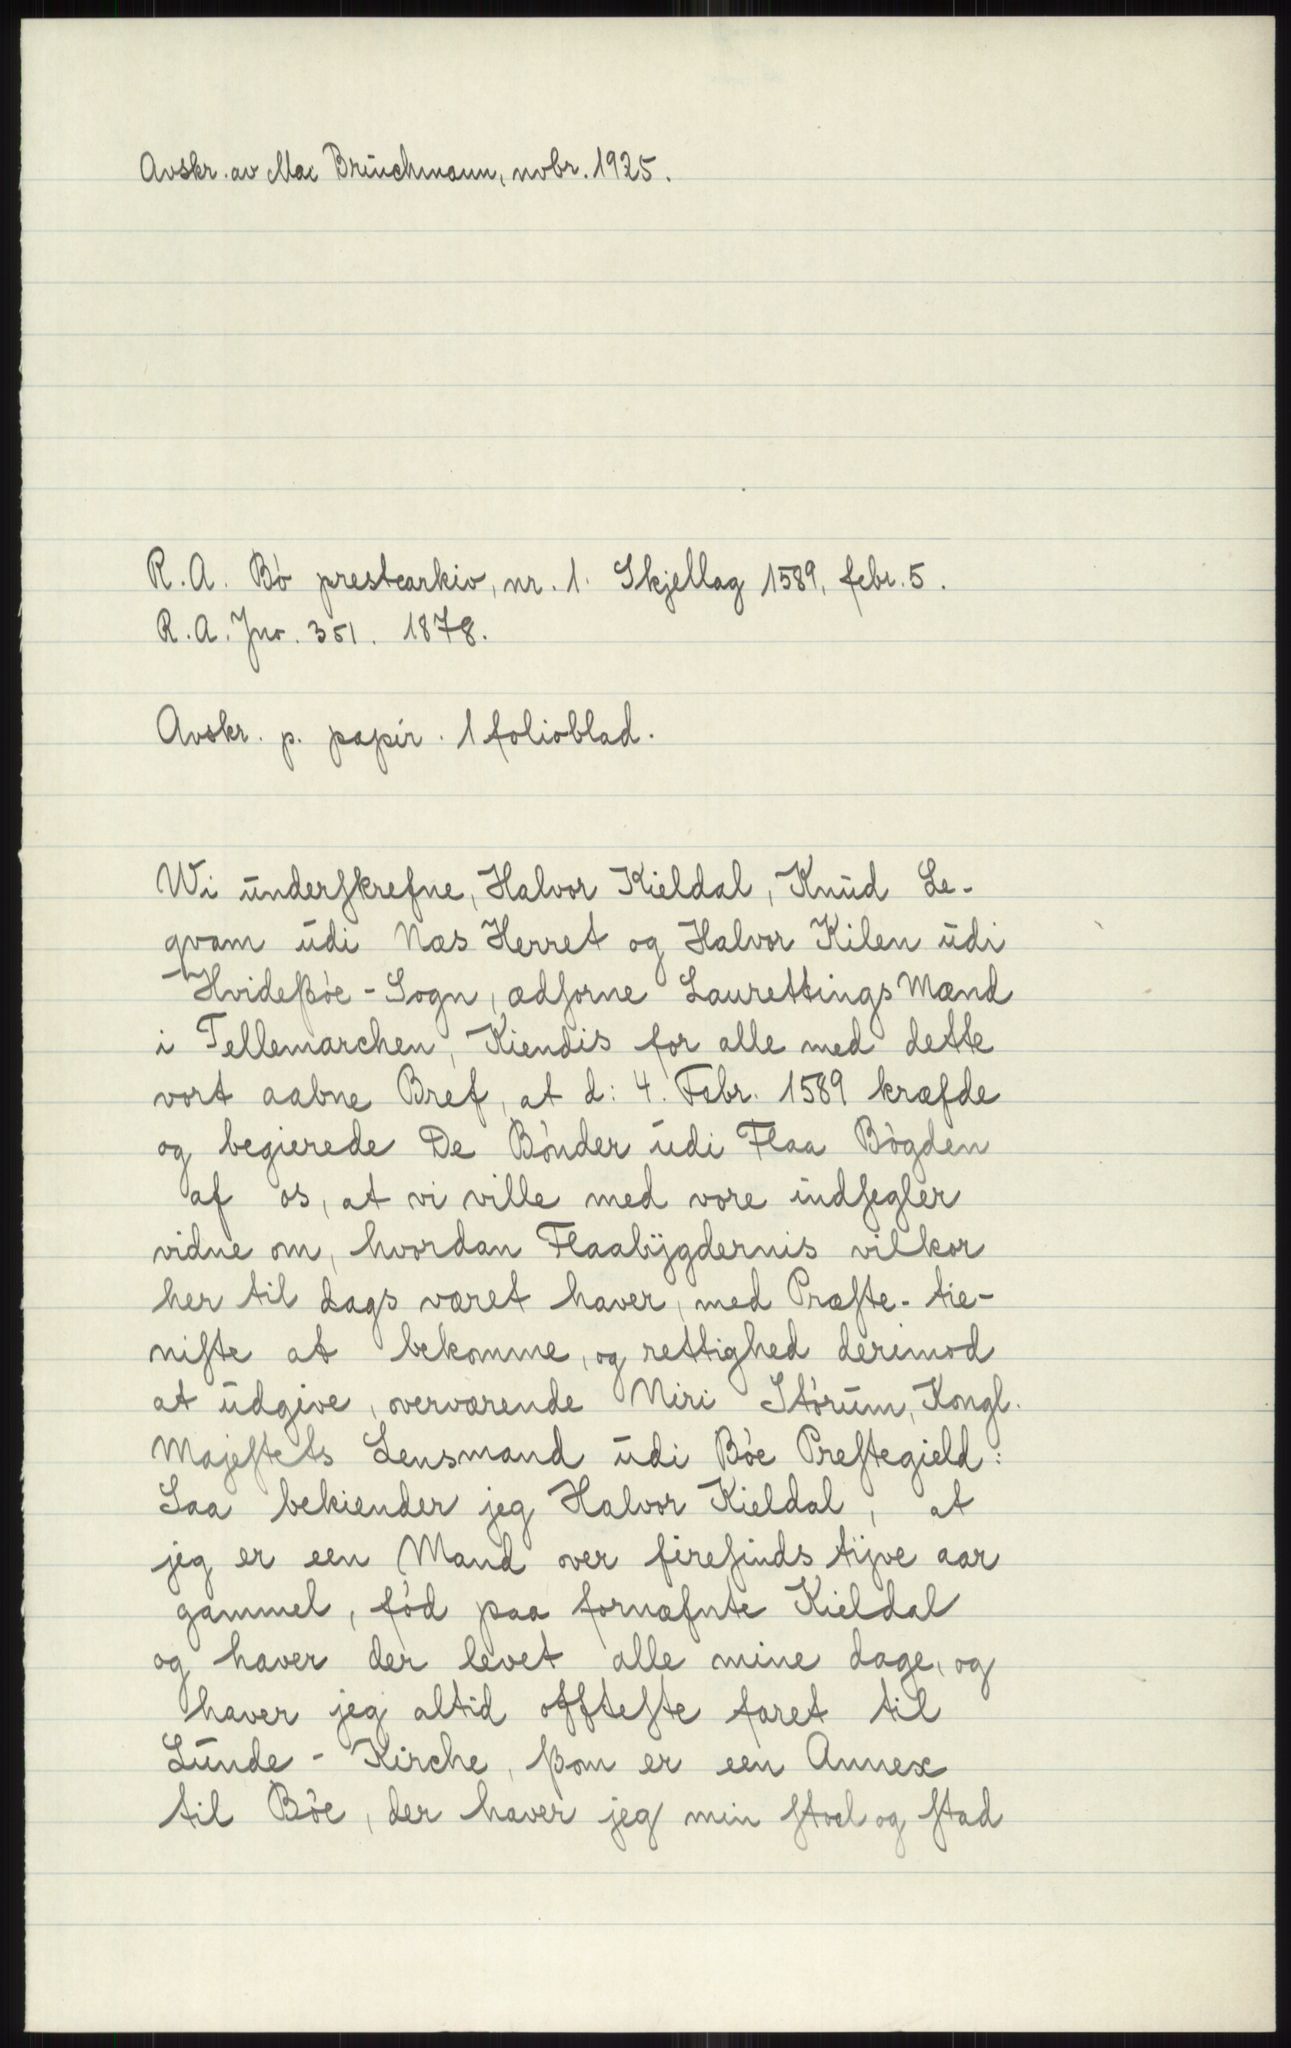 Avskr. av Mac Brŭnchmann, nvbr. 1925.
R. A. Bø prestearkiv, nr. 1. Skjellag 1589, febr. 5.
R. A. Jnr. 351. 1878.
Avskr. p. papir. 1 folioblad.
Wi ŭnderſkrefne, Halvor Kieldal, Knŭd Le-
qvam ŭdi Næs Herret og Halvor Kilen ŭdi
Hvideßøe - Sogn, ædſorne Laurettings Mænd
i Tellemarchen, Kiendis for alle med dette
vort aabne Bref, at d: 4. Febr. 1589 kræfde
og begierede De Bønder ŭdi Flaa Bøgden
af os, at vi ville med vore indſegler
vidne om, hvordan Flaabÿgdernis vilkor
her til dags været haver, med Præſte- tie-
niſte at bekomme, og rettighed derimod
at ŭdgive, overværende Niri Størŭm, Kongl.
Majeſtets Lensmand ŭdi Bøe Preſtegield:
Saa bekiender jeg Halvor Kieldal, at
jeg er een Mand over fireſinds tÿve aar
gammel, fød paa fornæfnte Kieldal
og haver der levet alle mine dage, og
haver jeg altid offteſte faret til
Lŭnde - Kirche, ßom er een Annex
til Bøe, der haver jeg min ſtoel og ſtad